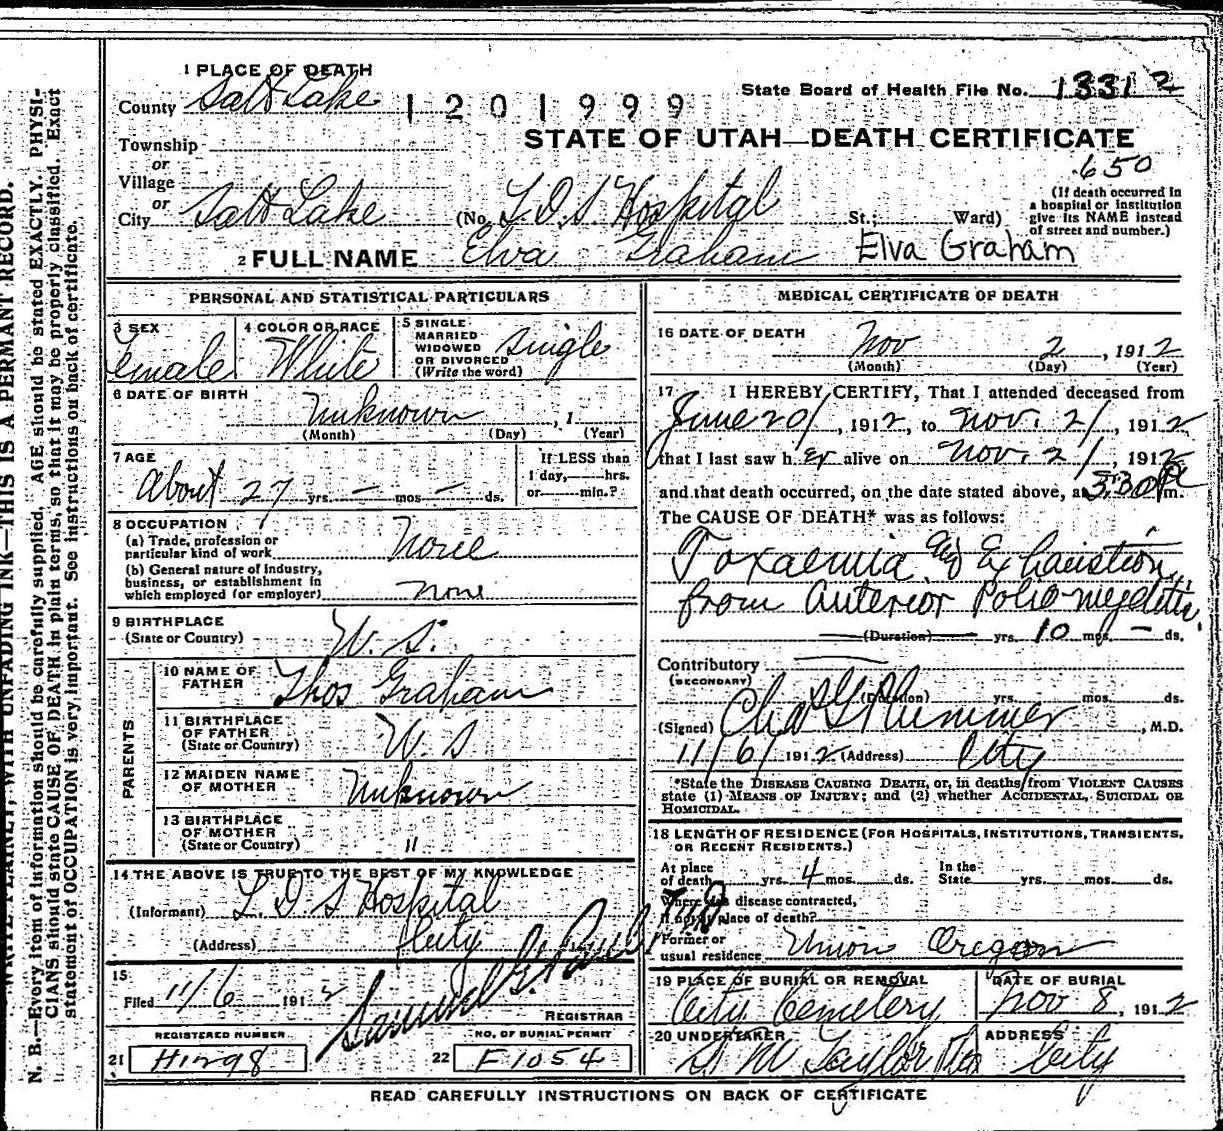 WRITE PLAINLY, WITH UNFADING INK—THIS IS A PERMANT RECORD.
N. B.—Every item of information should be carefully supplied. AGE should be stated EXACTLY. PHYSI-
CIANS should state CAUSE OF DEATH in plain terms, so that it may be properly classified. Exact
statement of OCCUPATION is very important. See instructions on back of certificate.
1 PLACE OF DEATH
County Salt Lake 1201999
State Board of Health File No. 13312
STATE OF UTAH—DEATH CERTIFICATE
Township
or
Village
or
City Salt Lake (No. L.D.S Hospital St.; Ward)
650
(If death occurred in
a hospital or institution
give its NAME instead
of street and number.)
2 FULL NAME Elva Graham Elva Graham
PERSONAL AND STATISTICAL PARTICULARS
3 SEX
Female
4 COLOR OR RACE
White
5 SINGLE
MARRIED
WIDOWED
OR DIVORCED
(Write the word)
Single
6 DATE OF BIRTH
Unknown, 1
(Month) (Day) (Year)
7 AGE
About 27 yrs. — mos — ds.
If LESS than
1 day, hrs.
or min.?
8 OCCUPATION
(a) Trade, profession or
particular kind of work None
(b) General nature of industry,
business, or establishment in
which employed (or employer) none
9 BIRTHPLACE
(State or Country) U.S.
PARENTS
10 NAME OF
FATHER Thos Graham
11 BIRTHPLACE
OF FATHER
(State or Country) U.S
12 MAIDEN NAME
OF MOTHER Unknown
13 BIRTHPLACE
OF MOTHER
(State or Country) "
14 THE ABOVE IS TRUE TO THE BEST OF MY KNOWLEDGE
(Informant) L.D.S Hospital
(Address) City
15
Filed 11/6 1912
Samuel G. Paul
REGISTRAR
REGISTERED NUMBER
21
NO. OF BURIAL PERMIT
22 F1054
MEDICAL CERTIFICATE OF DEATH
16 DATE OF DEATH
Nov 2, 1912
(Month) (Day) (Year)
17 I HEREBY CERTIFY, That I attended deceased from
June 20/, 1912, to Nov. 2/, 1912,
that I last saw her alive on Nov. 2/, 1912
and that death occurred, on the date stated above, at 3:30 P m.
The CAUSE OF DEATH* was as follows:
Toxaemia and Exhaustion
from Anterior Polio-myelitis.
(Duration) yrs. 10 mos. — ds.
Contributory
(SECONDARY)
(Duration) yrs. mos. ds.
(Signed) Chas G Plummer, M.D.
11/6/ 1912 (Address) City
*State the DISEASE CAUSING DEATH, or, in deaths from VIOLENT CAUSES
state (1) MEANS OF INJURY; and (2) whether ACCIDENTAL, SUICIDAL OR
HOMICIDAL.
18 LENGTH OF RESIDENCE (FOR HOSPITALS, INSTITUTIONS, TRANSIENTS,
OR RECENT RESIDENTS.)
At place
of death yrs. 4 mos. ds.
In the
State yrs. mos. ds.
Where was disease contracted,
if not at place of death?
Former or
usual residence Union Oregon
19 PLACE OF BURIAL OR REMOVAL
City Cemetery
DATE OF BURIAL
Nov 8, 1912
20 UNDERTAKER
S M Taylor
ADDRESS
City
READ CAREFULLY INSTRUCTIONS ON BACK OF CERTIFICATE